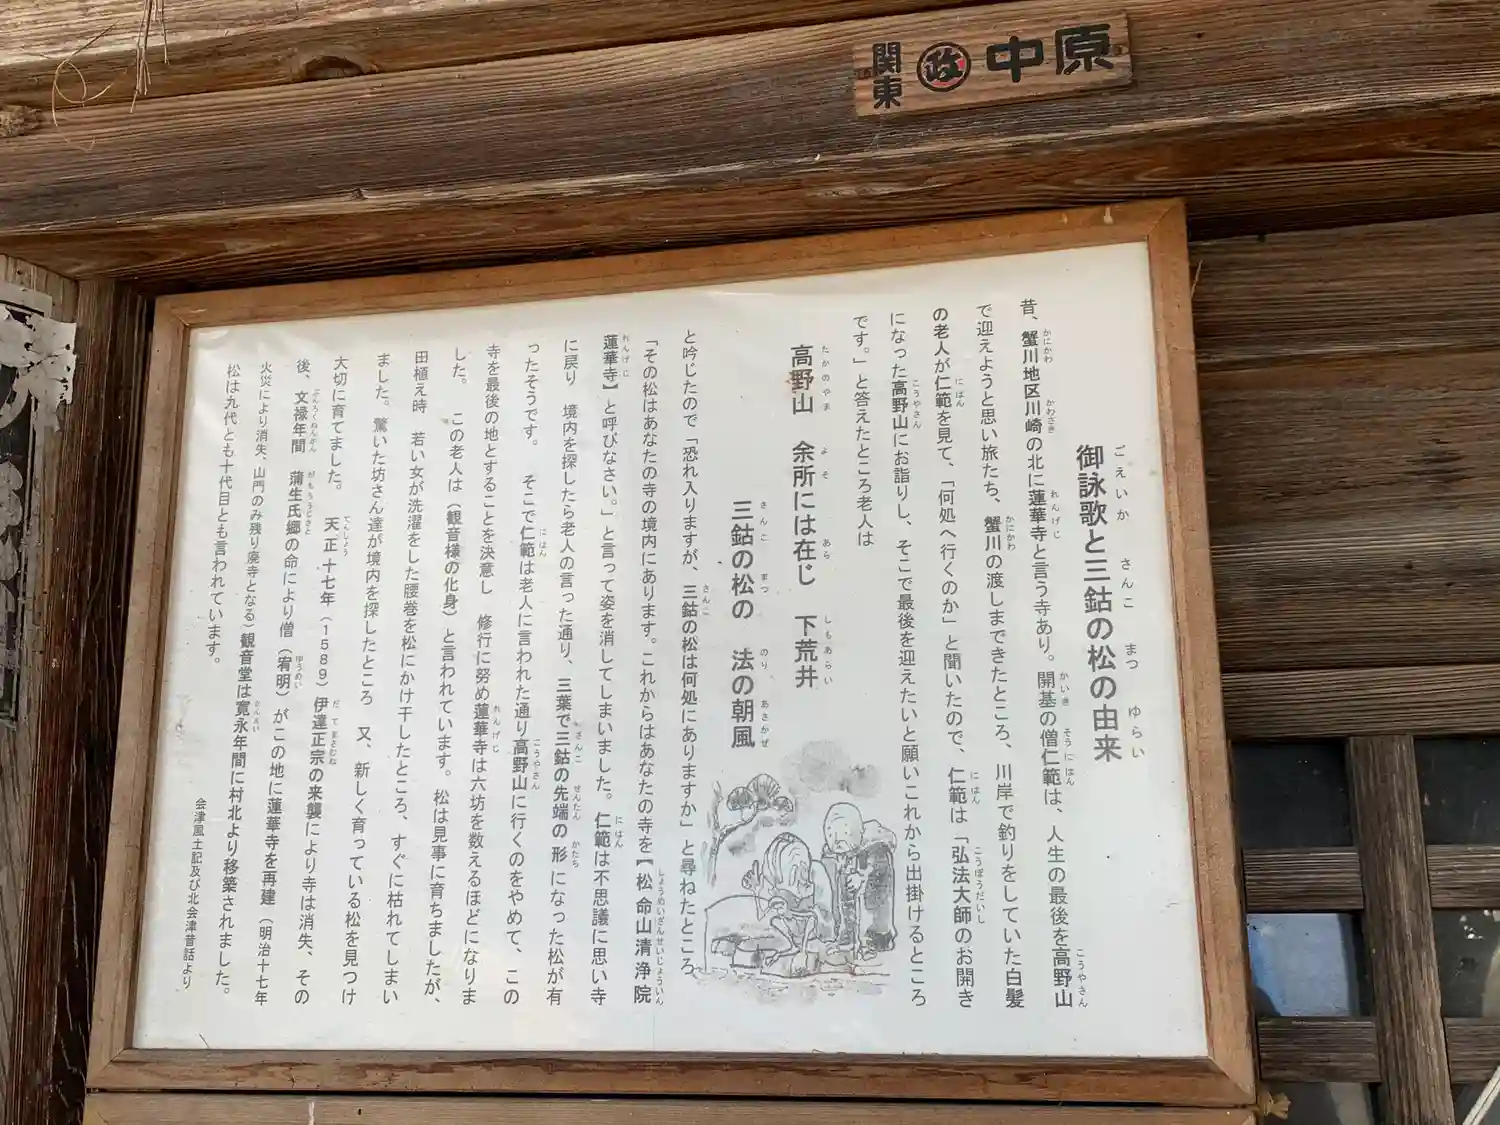 関東 政 中原
御詠歌と三鈷の松の由来
昔、蟹川地区川崎の北に蓮華寺と言う寺あり。開基の僧仁範は、人生の最後を高野山
で迎えようと思い旅たち、蟹川の渡しまできたところ、川岸で釣りをしていた白髪
の老人が仁範を見て、「何処へ行くのか」と聞いたので、仁範は「弘法大師のお開き
になった高野山にお詣りし、そこで最後を迎えたいと願いこれから出掛けるところ
です。」と答えたところ老人は
高野山 余所には在じ 下荒井
三鈷の松の 法の朝風
と吟じたので「恐れ入りますが、三鈷の松は何処にありますか」と尋ねたところ
「その松はあなたの寺の境内にあります。これからはあなたの寺を【松命山清浄院
蓮華寺】と呼びなさい。」と言って姿を消してしまいました。仁範は不思議に思い寺
に戻り 境内を探したら老人の言った通り、三葉で三鈷の先端の形になった松が有
ったそうです。 そこで仁範は老人に言われた通り高野山に行くのをやめて、この
寺を最後の地とすることを決意し 修行に努め蓮華寺は六坊を数えるほどになりま
した。 この老人は（観音様の化身）と言われています。松は見事に育ちましたが、
田植え時 若い女が洗濯をした腰巻を松にかけ干したところ、すぐに枯れてしまい
ました。驚いた坊さん達が境内を探したところ 又、新しく育っている松を見つけ
大切に育てました。 天正十七年（１５８９）伊達正宗の来襲により寺は消失、その
後、文禄年間 蒲生氏郷の命により僧（宥明）がこの地に蓮華寺を再建（明治十七年
火災により消失、山門のみ残り廃寺となる）観音堂は寛永年間に村北より移築されました。
松は九代とも十代目とも言われています。
会津風土記及び北会津昔話より